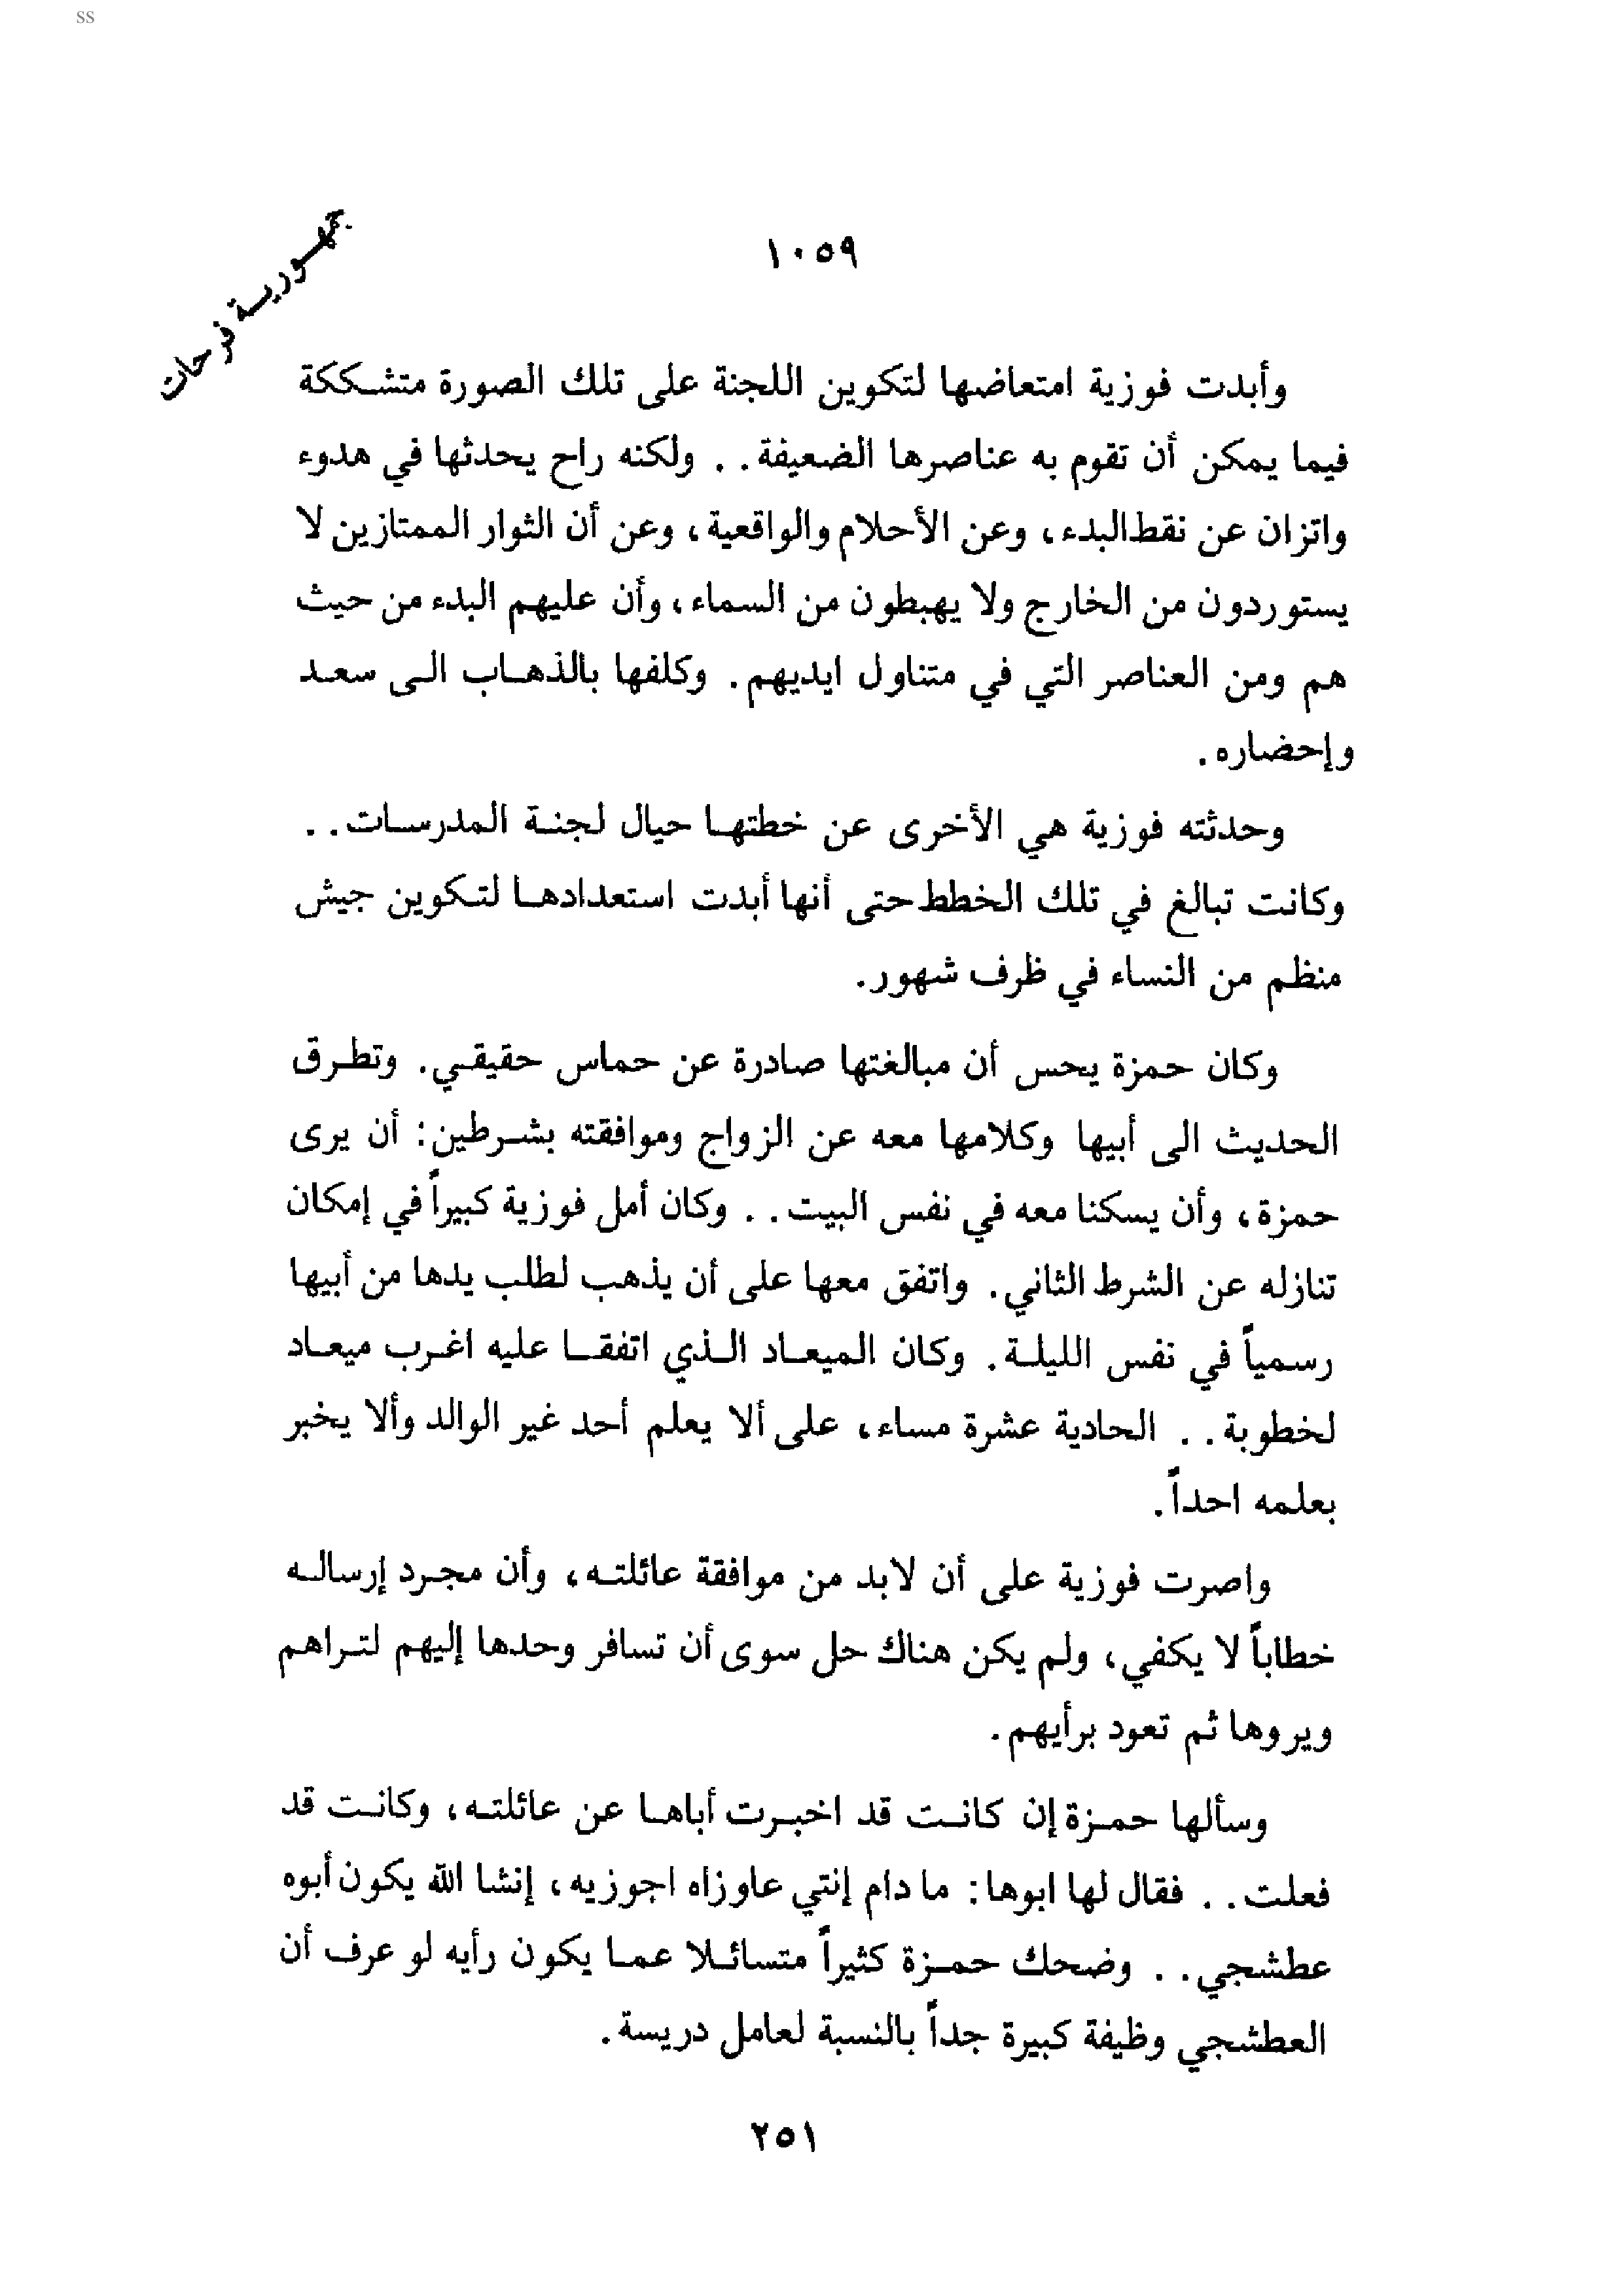 ss
١٠٥٩
جمهورية فرحات
وأبدت فوزية امتعاضها لتكوين اللجنة على تلك الصورة متشككة
فيما يمكن أن تقوم به عناصرها الضعيفة . . ولكنه راح يحدثها في هدوء
واتزان عن نقط البدء ، وعن الأحلام والواقعية ، وعن أن الثوار الممتازين لا
يستوردون من الخارج ولا يهبطون من السماء ، وأن عليهم البدء من حيث
هم ومن العناصر التي في متناول ايديهم . وكلفها بالذهاب الى سعد
وإحضاره .
وحدثته فوزية هي الأخرى عن خطتها حيال لجنة المدرسات . .
وكانت تبالغ في تلك الخطط حتى أنها أبدت استعدادها لتكوين جيش
منظم من النساء في ظرف شهور .
وكان حمزة يحس أن مبالغتها صادرة عن حماس حقيقي . وتطرق
الحديث الى أبيها وكلامها معه عن الزواج وموافقته بشرطين : أن يرى
حمزة ، وأن يسكنا معه في نفس البيت . . وكان أمل فوزية كبيراً في إمكان
تنازله عن الشرط الثاني . واتفق معها على أن يذهب لطلب يدها من أبيها
رسمياً في نفس الليلة . وكان الميعاد الذي اتفقا عليه اغرب ميعاد
لخطوبة . . الحادية عشرة مساء ، على ألا يعلم أحد غير الوالد وألا يخبر
بعلمه احداً .
واصرت فوزية على أن لابد من موافقة عائلته ، وأن مجرد إرساله
خطاباً لا يكفي ، ولم يكن هناك حل سوى أن تسافر وحدها إليهم لتراهم
ويروها ثم تعود برأيهم .
وسألها حمزة إن كانت قد اخبرت أباها عن عائلته ، وكانت قد
فعلت . . فقال لها ابوها : ما دام إنتي عاوزاه اجوزيه ، إنشا الله يكون أبوه
عطشجي . . وضحك حمزة كثيراً متسائلا عما يكون رأيه لو عرف أن
العطشجي وظيفة كبيرة جداً بالنسبة لعامل دريسة .
٢٥١